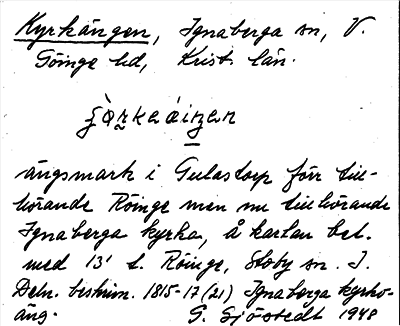 Kyrkängen, Ignaberga sn, V.
Göinge hd, Krist. län.
ängsmark i Gulastorp förr till-
hörande Röinge men nu tillhörande
Ignaberga kyrka, å kartan bet.
med 13' t. Röinge, Stoby sn. J.
Deln. beskrivn. 1815-17 (21) Ignaberga kyrko-
äng. G. Sjöstedt 1948